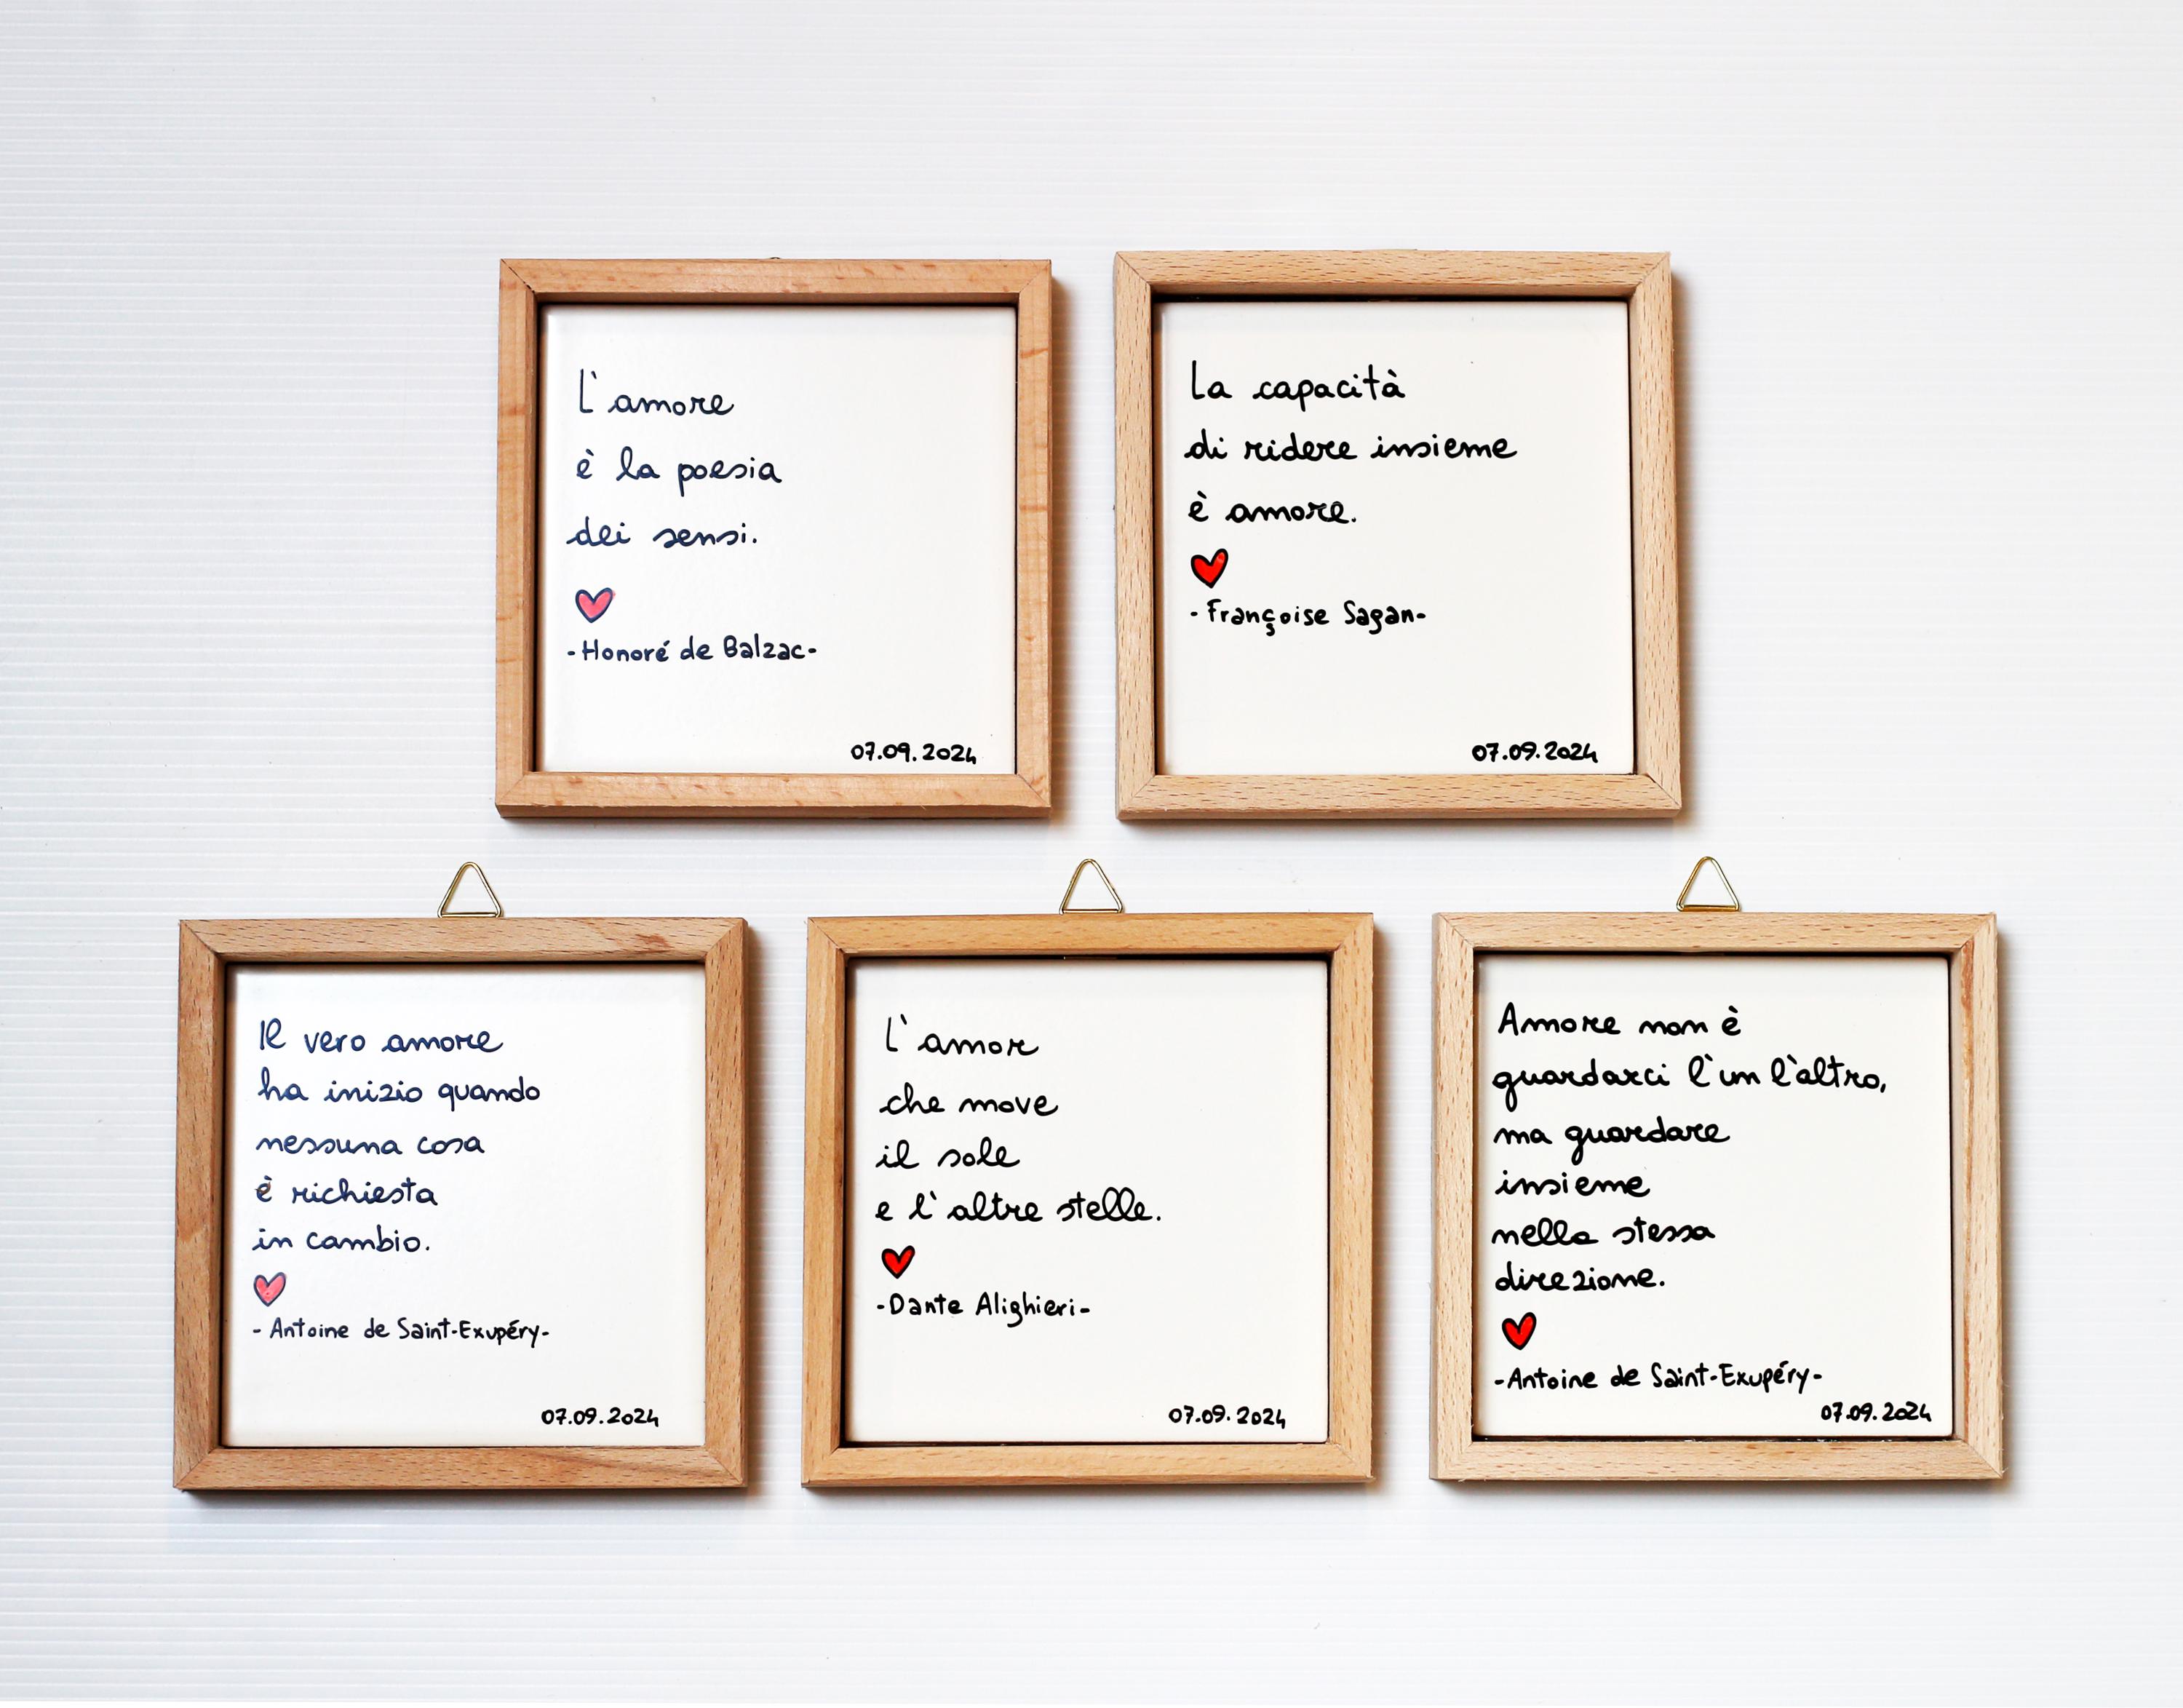 L'amore
è la poesia
dei sensi.
-Honoré de Balzac-
07.09.2024
La capacità
di ridere insieme
è amore.
-Françoise Sagan-
07.09.2024
Il vero amore
ha inizio quando
nessuna cosa
è richiesta
in cambio.
- Antoine de Saint-Exupéry-
07.09.2024
L'amor
che move
il sole
e l'altre stelle.
-Dante Alighieri-
07.09.2024
Amore non è
guardarci l'un l'altro,
ma guardare
insieme
nella stessa
direzione.
-Antoine de Saint-Exupéry-
07.09.2024